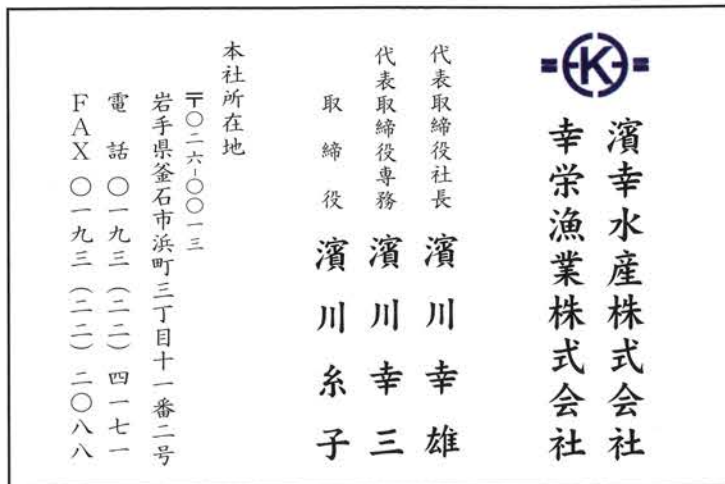 K
濱幸水産株式会社
幸栄漁業株式会社
代表取締役社長 濱川幸雄
代表取締役専務 濱川幸三
取締役 濱川糸子
本社所在地
〒〇二六-〇〇一三
岩手県釜石市浜町三丁目十一番二号
電話〇一九三(二二)四一七一
FAX〇一九三(二二)二〇八八